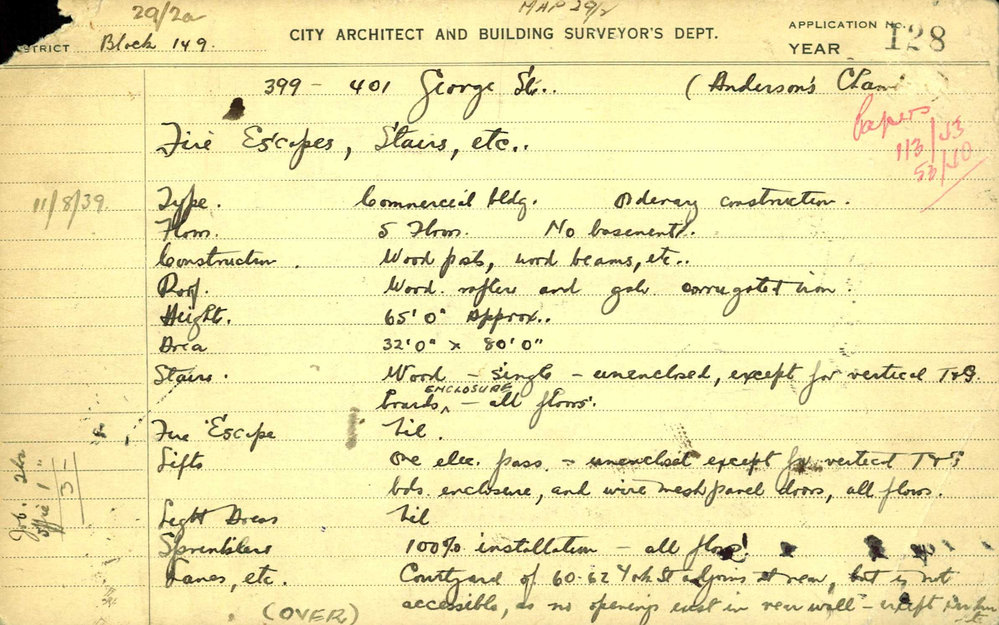 29/2a
MAP 29/2
DISTRICT Block 149.
CITY ARCHITECT AND BUILDING SURVEYOR'S DEPT.
APPLICATION No. 128
YEAR
399 - 401 George St.. (Anderson's Cham
Papers
113/53
53/50
Fire Escapes, Stairs, etc..
11/8/39
Type. Commercial bldg. Ordinary construction.
Floors. 5 Floors. No basement.
Construction. Wood posts, wood beams, etc..
Roof. Wood rafters and galv. corrugated iron
Height. 65'0" Approx..
Area 32'0" x 80'0"
Stairs. Wood - Single - unenclosed, except for vertical T&G.
boards ENCLOSURE - all floors.
Fire Escape Nil.
Lifts One elec. pass - unenclosed except for vertical T&G
bds. enclosure, and wire mesh panel doors, all floors.
Light Areas Nil
Sprinklers 100% installation - all floors
Lanes, etc. Courtyard of 60-62 York St adjoins at rear, but is not
accessible, as no openings exist in rear wall - except
(OVER)
Job. 2hr
Office 1"
3 -